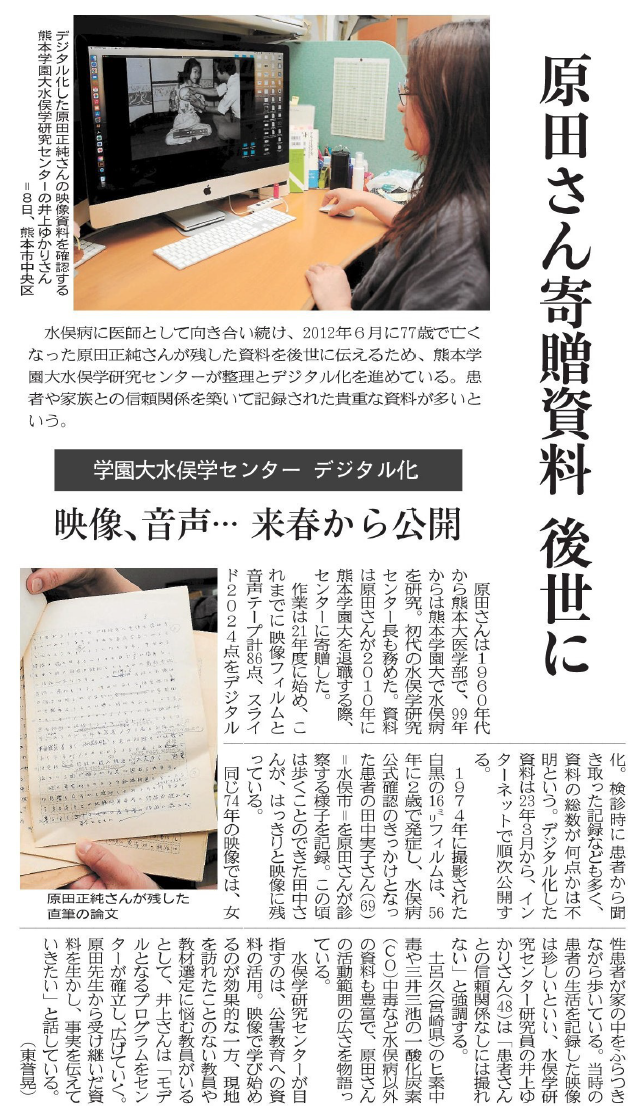 原田さん寄贈資料 後世に
デジタル化した原田正純さんの映像資料を確認する
熊本学園大水俣学研究センターの井上ゆかりさん
=8日、熊本市中央区
水俣病に医師として向き合い続け、2012年6月に77歳で亡く
なった原田正純さんが残した資料を後世に伝えるため、熊本学
園大水俣学研究センターが整理とデジタル化を進めている。患
者や家族との信頼関係を築いて記録された貴重な資料が多いと
いう。
学園大水俣学センター デジタル化
映像、音声… 来春から公開
原田さんは1960年代
から熊本大医学部で、99年
からは熊本学園大で水俣病
を研究。初代の水俣学研究
センター長も務めた。資料
は原田さんが2010年に
熊本学園大を退職する際、
センターに寄贈した。
作業は21年度に始め、こ
れまでに映像フィルムと
音声テープ計86点、スライ
ド2024点をデジタル
化。検診時に患者から聞
き取った記録なども多く、
資料の総数が何点かは不
明という。デジタル化した
資料は23年3月から、イン
ターネットで順次公開す
る。
1974年に撮影された
白黒の16㍉フィルムは、56
年に2歳で発症し、水俣病
公式確認のきっかけとなっ
た患者の田中実子さん(69)
=水俣市=を原田さんが診
察する様子を記録。この頃
は歩くことのできた田中さ
んが、はっきりと映像に残
っている。
同じ74年の映像では、女
性患者が家の中をふらつき
ながら歩いている。当時の
患者の生活を記録した映像
は珍しいといい、水俣学研
究センター研究員の井上ゆ
かりさん(48)は「患者さん
との信頼関係なしには撮れ
ない」と強調する。
土呂久(宮崎県)のヒ素中
毒や三井三池の一酸化炭素
(CO)中毒など水俣病以外
の資料も豊富で、原田さん
の活動範囲の広さを物語っ
ている。
水俣学研究センターが目
指すのは、公害教育への資
料の活用。映像で学び始め
るのが効果的な一方、現地
を訪れたことのない教員や
教材選定に悩む教員がいる
として、井上さんは「モデ
ルとなるプログラムをセン
ターが確立し、広げていく。
原田先生から受け継いだ資
料を生かし、事実を伝えて
いきたい」と話している。
(東誉晃)
原田正純さんが残した
直筆の論文